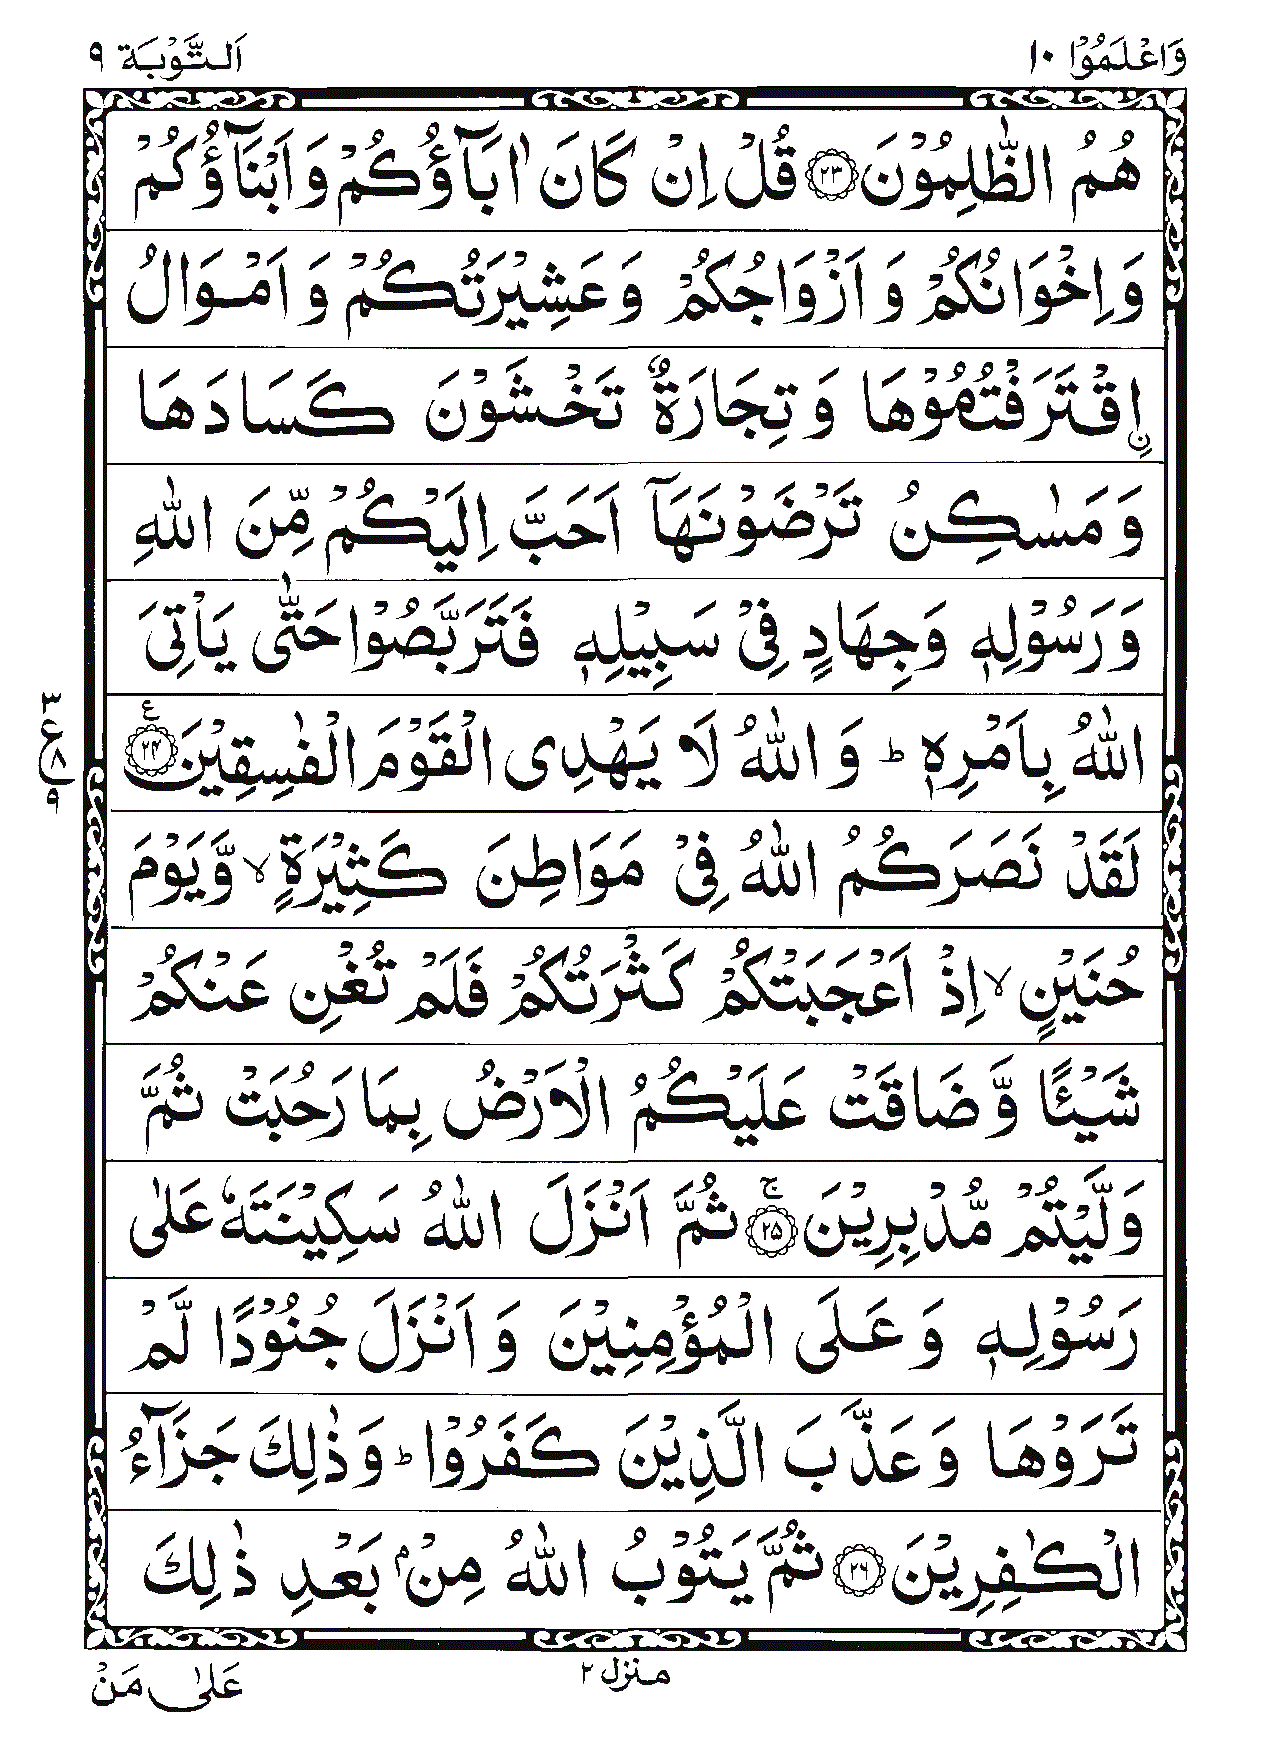 وَاعْلَمُوْٓا ١٠
اَلتَّوْبَة ٩
هُمُ الظّٰلِمُوْنَ ﴿٢٣﴾ قُلْ اِنْ كَانَ اٰبَآؤُكُمْ وَاَبْنَآؤُكُمْ
وَاِخْوَانُكُمْ وَ اَزْوَاجُكُمْ وَعَشِيْرَتُكُمْ وَ اَمْـوَالُ
ۨاِقْتَرَفْتُمُوْهَا وَ تِجَارَةٌ تَخْشَوْنَ كَسَادَهَا
وَ مَسٰكِنُ تَرْضَوْنَهَآ اَحَبَّ اِلَيْكُمْ مِّنَ اللّٰهِ
وَ رَسُوْلِهٖ وَجِهَادٍ فِيْ سَبِيْلِهٖ فَتَرَبَّصُوْا حَتّٰى يَاْتِىَ
اللّٰهُ بِاَمْرِهٖ ؕ وَ اللّٰهُ لَا يَهْدِى الْقَوْمَ الْفٰسِقِيْنَ ﴿٢٤﴾ ع
٣
ع ٨
٩
لَقَدْ نَصَرَكُمُ اللّٰهُ فِيْ مَوَاطِنَ كَثِيْرَةٍ ۙ وَّيَوْمَ
حُنَيْنٍ ۙ اِذْ اَعْجَبَتْكُمْ كَثْرَتُكُمْ فَلَمْ تُغْنِ عَنْكُمْ
شَيْـًٔا وَّ ضَاقَتْ عَلَيْكُمُ الْاَرْضُ بِمَا رَحُبَتْ ثُمَّ
وَلَّيْتُمْ مُّدْبِرِيْنَ ۚ﴿٢٥﴾ ثُمَّ اَنْزَلَ اللّٰهُ سَكِيْنَتَهٗ عَلٰى
رَسُوْلِـهٖ وَ عَـلَى الْمُؤْمِنِيْنَ وَ اَنْزَلَ جُنُوْدًا لَّمْ
تَرَوْهَا وَ عَذَّبَ الَّذِيْنَ كَفَرُوْا ؕ وَ ذٰلِكَ جَزَآءُ
الْكٰفِرِيْنَ ﴿٢٦﴾ ثُمَّ يَتُوْبُ اللّٰهُ مِنْۢ بَعْدِ ذٰلِكَ
منزل ٢
عَلٰى مَنْ